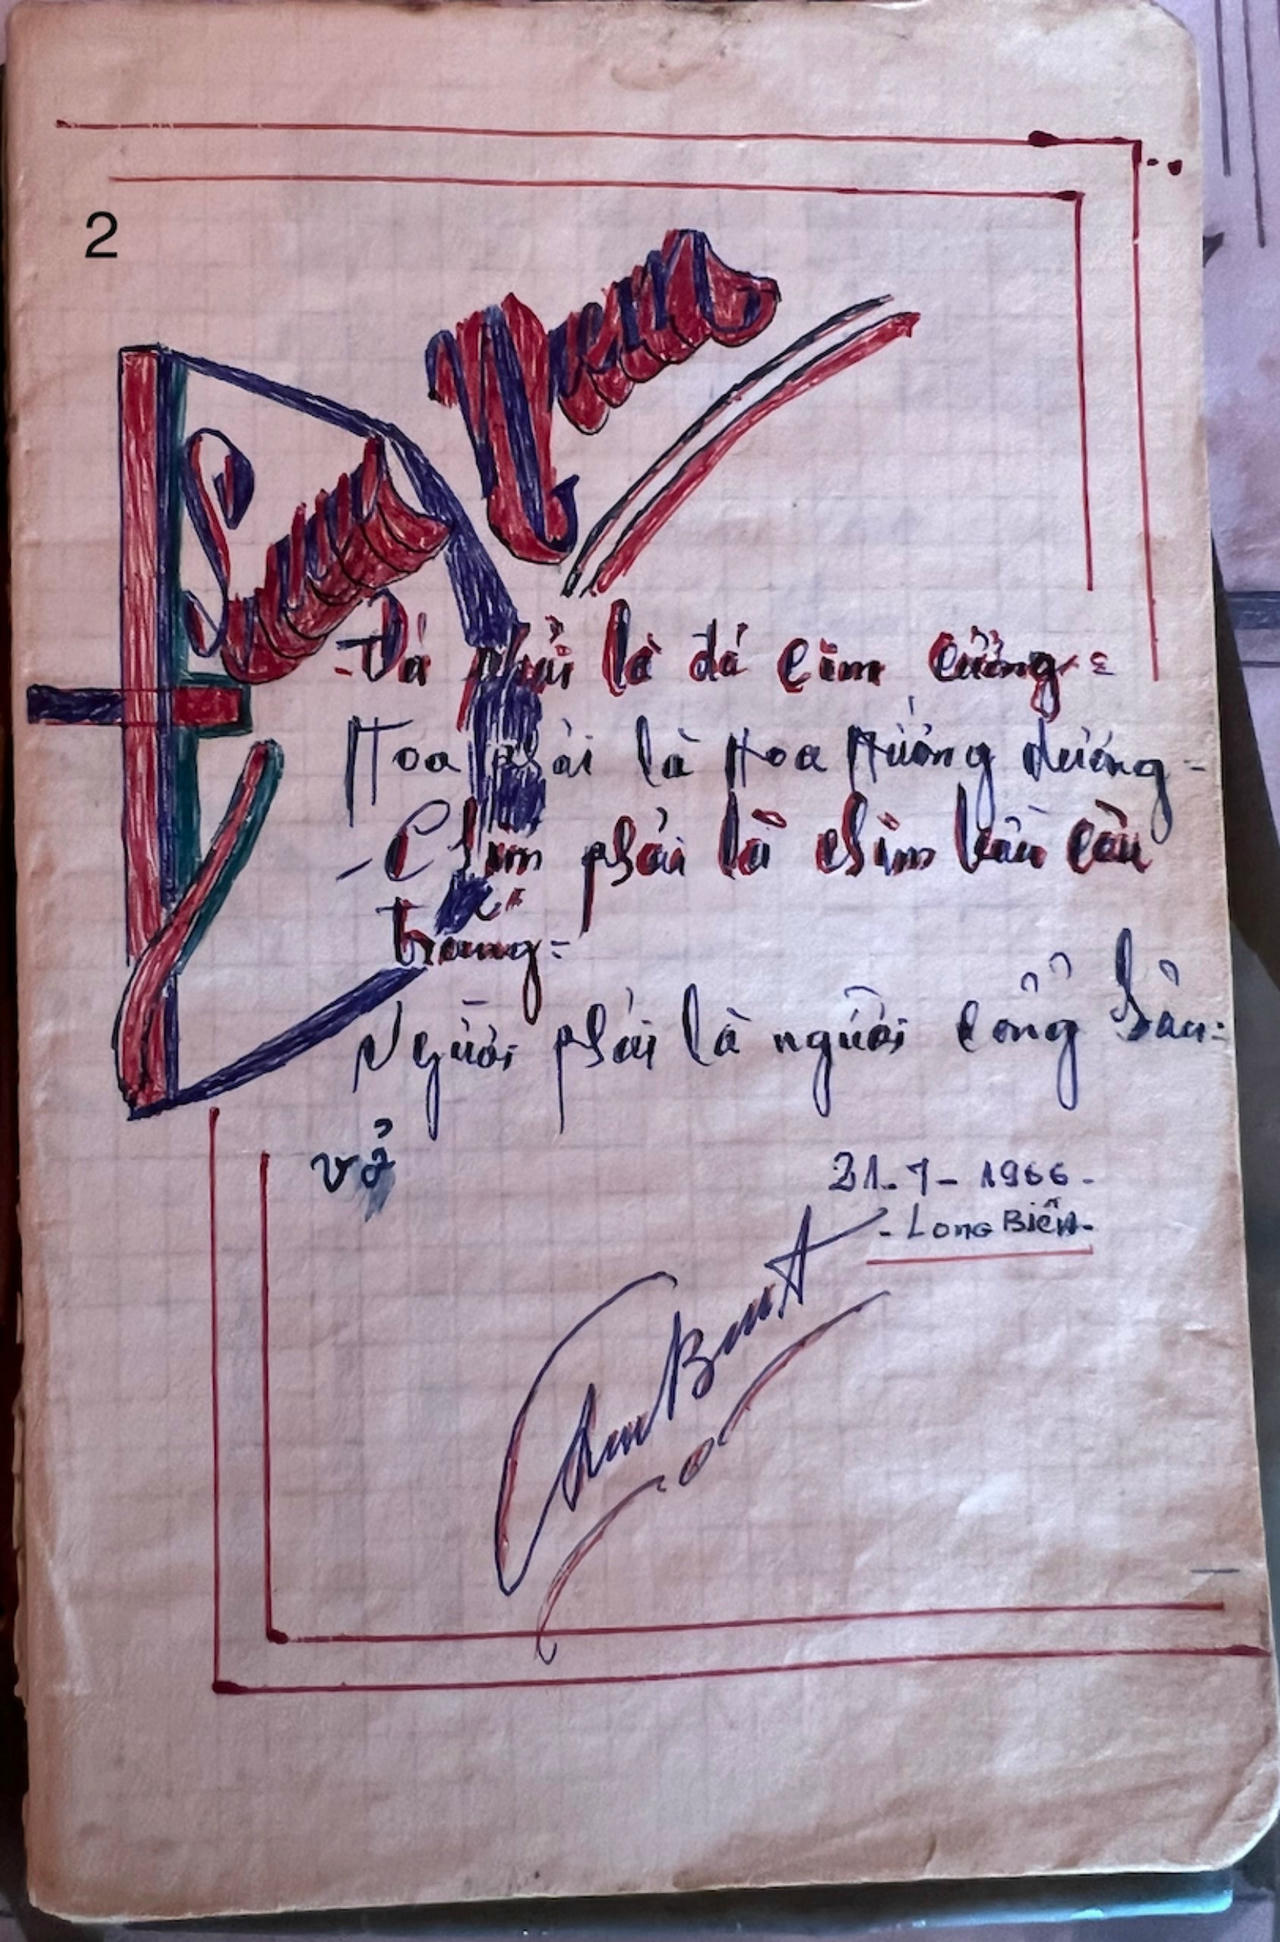 2
Lưu Niệm
- Đá phải là đá cim cưởng -
Hoa phải là Hoa Hướng dương -
- Chim phải là chim bầu câu
trắng -
Người phải là người cổng Sản -
vở
31-7-1966-
- Long Biên -